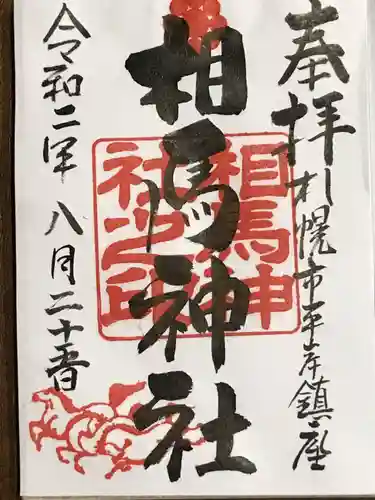 奉拝
札幌市平岸鎮座
相馬神社
相馬神
社之印
令和二年八月二十一日